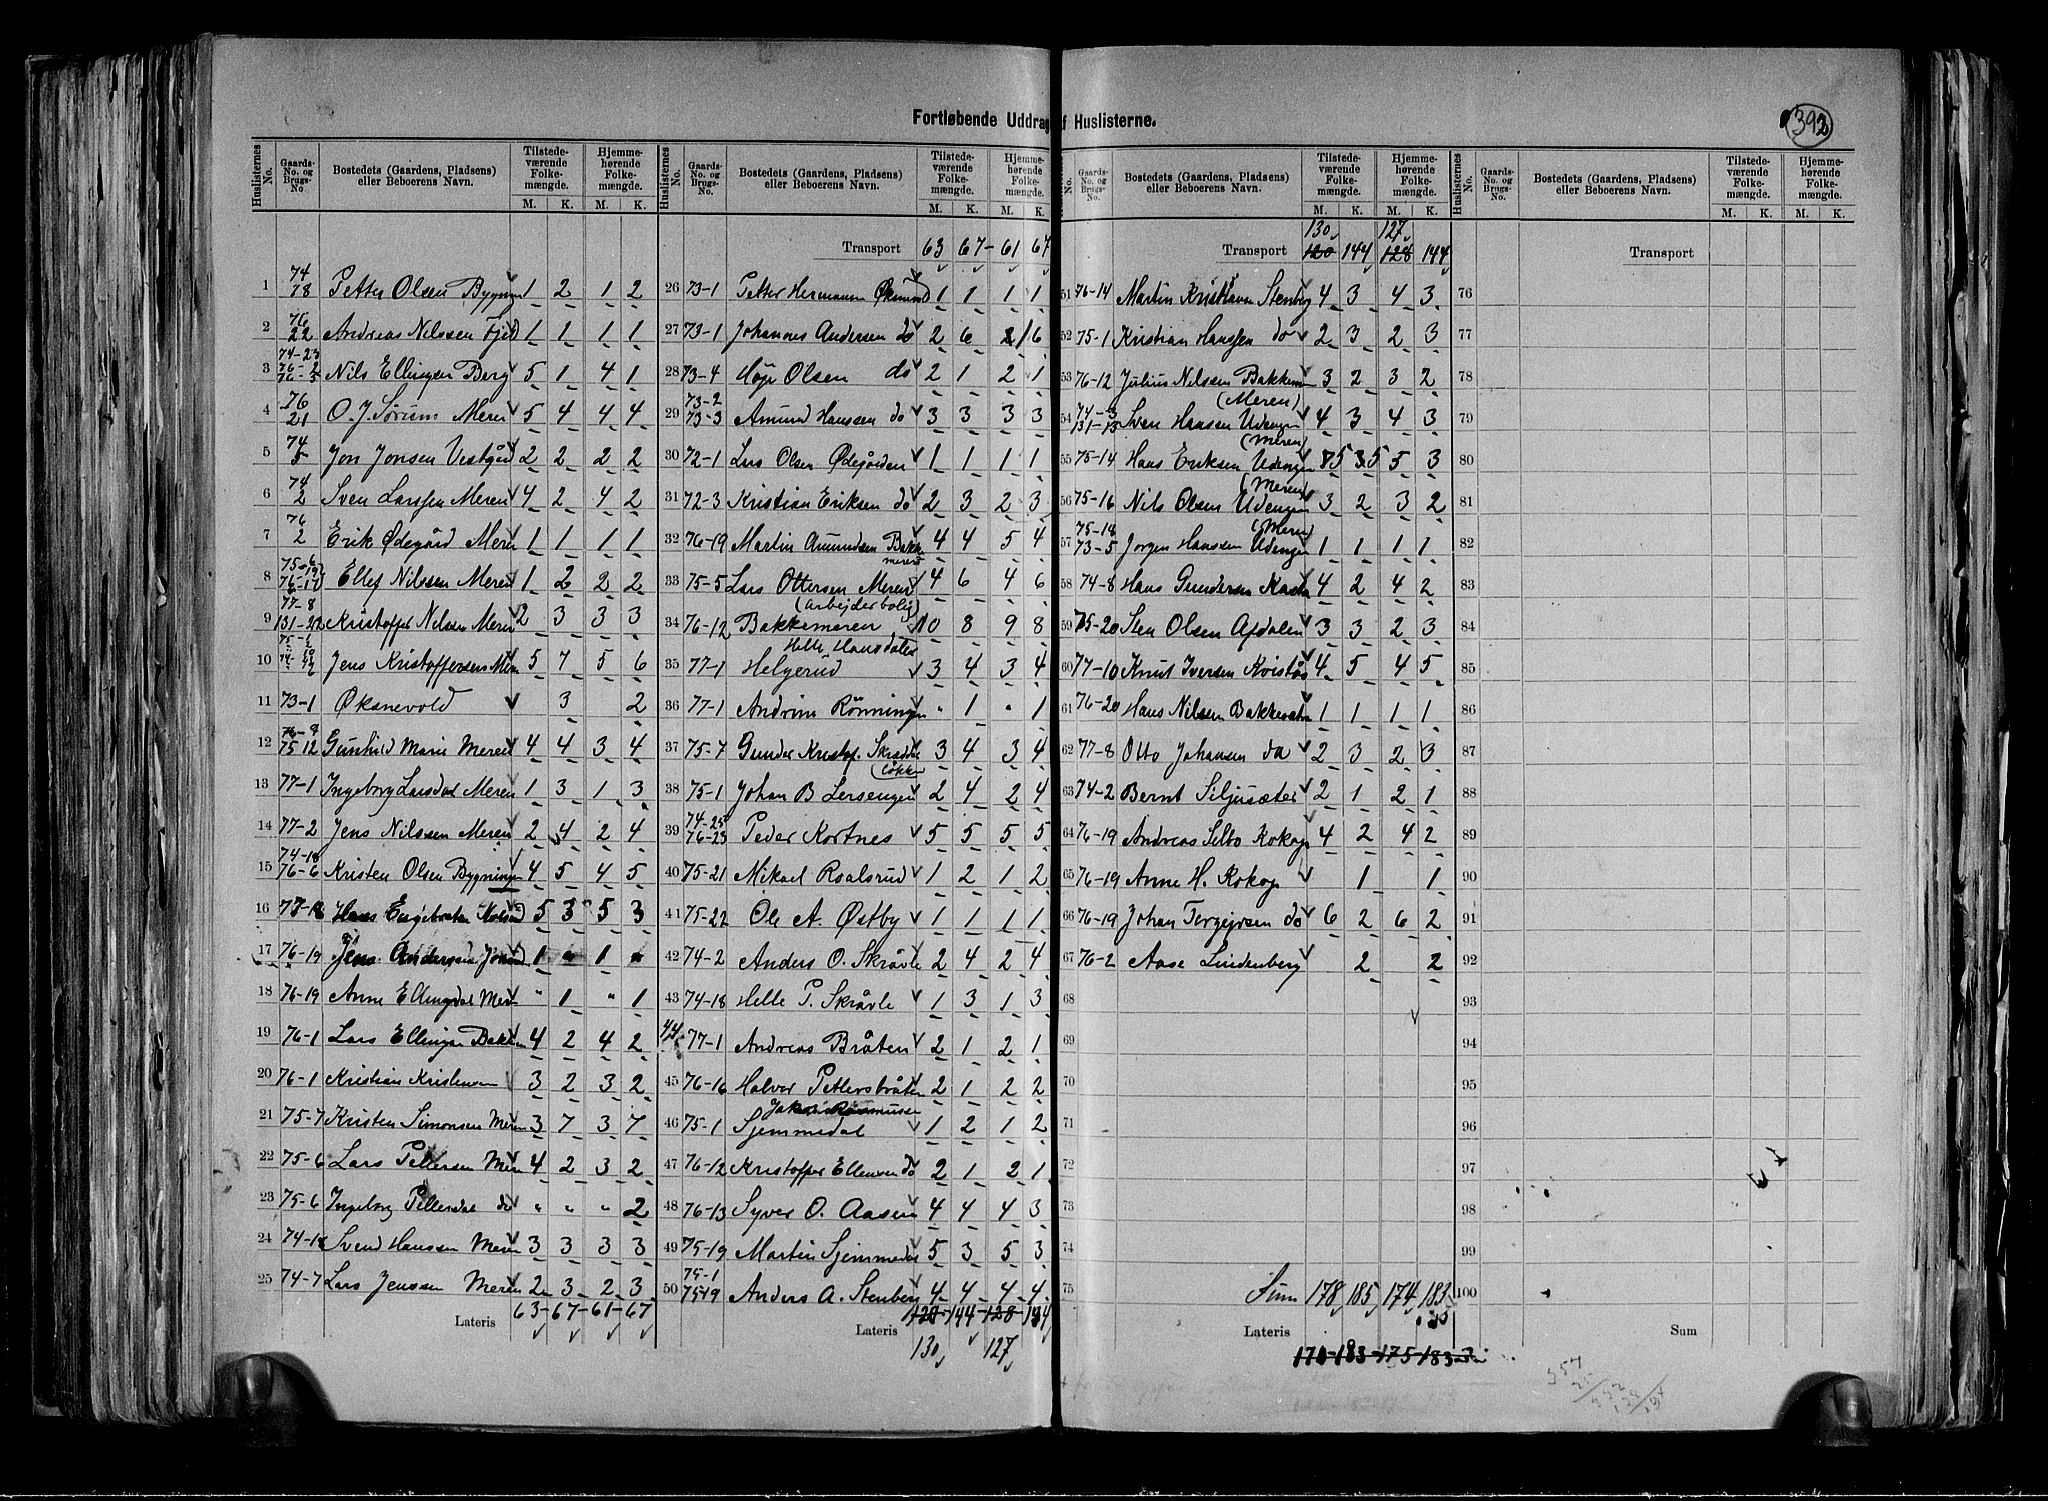 Fortløbende Uddrag af Huslisterne.
392
Huslisternes No. Gaards-No. og Brugs-No. Bostedets (Gaardens, Pladsens) eller Beboerens Navn. Tilstedeværende Folkemængde. M. K. Hjemmehørende Folkemængde. M. K.
1 74 78 Petter Olsen Bygningen 1 2 1 2
2 76 22 Andreas Nilssen Fjeld 1 1 1 1
3 74-23 76-2 76-3 Nils Ellingsen Berg 5 1 4 1
4 76 21 O. J. Sørum Meren 5 4 4 4
5 74 5 Jon Jonsen Vestgård 2 2 2 2
6 74 2 Sven Larssen Meren 4 2 4 2
7 76 2 Erik Ødegård Meren 1 1 1 1
8 75-6 76-17 Ellef Nilssen Meren 1 2 2 2
9 77-8 131-22 Kristoffer Nilsen Meren 2 3 3 3
10 Jens Kristoffersen Meren 5 7 5 6
11 73-1 Øksnevold 3 2
12 76-9 75 12 Gunhild Marie Meren 4 4 3 4
13 77-1 Ingeborg Larsdat Meren 1 3 1 3
14 77-2 Jens Nilssen Meren 2 4 2 4
15 74-18 76-6 Kristen Olsen Bygningen 4 5 4 5
16 Hans Engebreten 5 3 5 3
17 76-19 Jens Andersen 1 " 1 "
18 76-19 Anne Ellingsdat Meren " 1 " 1
19 76-1 Lars Ellingsen Bakken 4 2 4 2
20 76-1 Kristian Kristensen 3 2 3 2
21 75-7 Kristen Simonsen Meren 3 7 3 7
22 75-6 Lars Pettersen Meren 4 2 3 2
23 75-6 Ingeborg Pettersdat do " " " 2
24 74-18 Svend Hanssen Meren 3 3 3 3
25 74-7 Lars Jenssen Meren 2 3 2 3
Lateris 63 67 61 67
Huslisternes No. Gaards-No. og Brugs-No. Bostedets (Gaardens, Pladsens) eller Beboerens Navn. Tilstedeværende Folkemængde. M. K. Hjemmehørende Folkemængde. M. K.
Transport 63 67 61 67
26 73-1 Petter Hermansen Øksnevold 1 1 1 1
27 73-1 Johannes Andersen do 2 6 1 6
28 73-4 Høje Olsen do 2 1 2 1
29 73-2 73-3 Amund Hanssen do 3 3 3 3
30 72-1 Lars Olsen Ødegården 1 1 1 1
31 72-3 Kristian Eriksen do 2 3 2 3
32 76-19 Martin Amundsen Bakkemeren 4 4 5 4
33 75-5 Lars Ottersen Meren 4 6 4 6
34 76-12 (arbejderbolig) Bakkemeren 10 8 9 8
35 77-1 Helle Hansdatter Helgerud 3 4 3 4
36 77-1 Andrine Rönningen " 1 " 1
37 75-7 Gunder Kristof. Skrædder (løkken 3 4 3 4
38 75-1 Johan B Lersengen 2 4 2 4
39 74-25 76-23 Peder Kortnes 5 5 5 5
40 75-21 Mikael Roalsrud 1 2 1 2
41 75-22 Ole A. Østby 1 1 1 1
42 74-2 Anders O. Skråvle 2 4 2 4
43 74-18 Helle P. Skråvle 1 3 1 3
44 77-1 Andreas Bråten 2 1 2 1
45 76-16 Halvor Pettersbråten 2 1 2 2
46 75-1 Jakob Rasmussen Sjemmedal 1 2 1 2
47 76-12 Kristoffer Ellensen do 2 1 2 1
48 76-13 Syver O. Aasen 4 4 4 3
49 75-19 Martin Sjemmedal 5 3 5 3
50 75-1 75-19 Anders A. Stenberg 4 4 4 4
Lateris 120 144 128 144
130 127
No. Gaards-No. og Brugs-No. Bostedets (Gaardens, Pladsens) eller Beboerens Navn. Tilstedeværende Folkemængde. M. K. Hjemmehørende Folkemængde. M. K.
130 127
Transport 120 144 128 144
51 76-14 Martin Kristiansen Stenberg 4 3 4 3
52 75-1 Kristian Hanssen do 2 3 2 3
53 76-12 Julius Nilssen Bakkemeren 3 2 3 2
54 74-3 131-13 Sven Hansen Udengen (Meren) 4 3 4 3
55 75-14 Hans Eriksen Udengen (Meren) 5 3 5 3
56 75-16 Nils Olsen Udengen (Meren) 3 2 3 2
57 75-18 73-5 Jørgen Hanssen Udengen (Meren) 1 1 1 1
58 74-8 Hans Gundersen 4 2 4 2
59 75-20 Sten Olsen Afdalen 3 3 2 3
60 77-10 Knut Iversen Kviståsen 4 5 4 5
61 76-20 Hans Nilsen 1 1 1 1
62 77-8 Otto Johansen do 2 3 2 3
63 74-2 Bernt Siljusæter 2 1 2 1
64 76-19 Andreas Kokop 4 2 4 2
65 76-19 Anne H. Kokop 1 1
66 76-19 Johan Tergejersen do 6 2 6 2
67 76-2 Aase Lindenberg 2 2
68
69
70
71
72
73
74
75
Sum 178 185 174 183
Lateris
170 183 175 183
Huslisternes No. Gaards-No. og Brugs-No. Bostedets (Gaardens, Pladsens) eller Beboerens Navn. Tilstedeværende Folkemængde. M. K. Hjemmehørende Folkemængde. M. K.
Transport
76
77
78
79
80
81
82
83
84
85
86
87
88
89
90
91
92
93
94
95
96
97
98
99
100
Sum